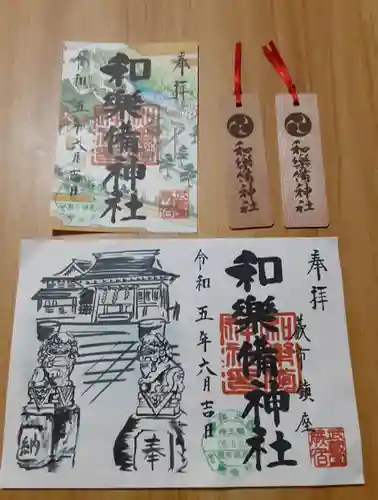 奉拝
和樂備神社
令和五年六月吉日
和樂備神社
和樂備神社
奉拝
蕨市鎮座
和樂備神社
令和五年六月吉日
奉
納